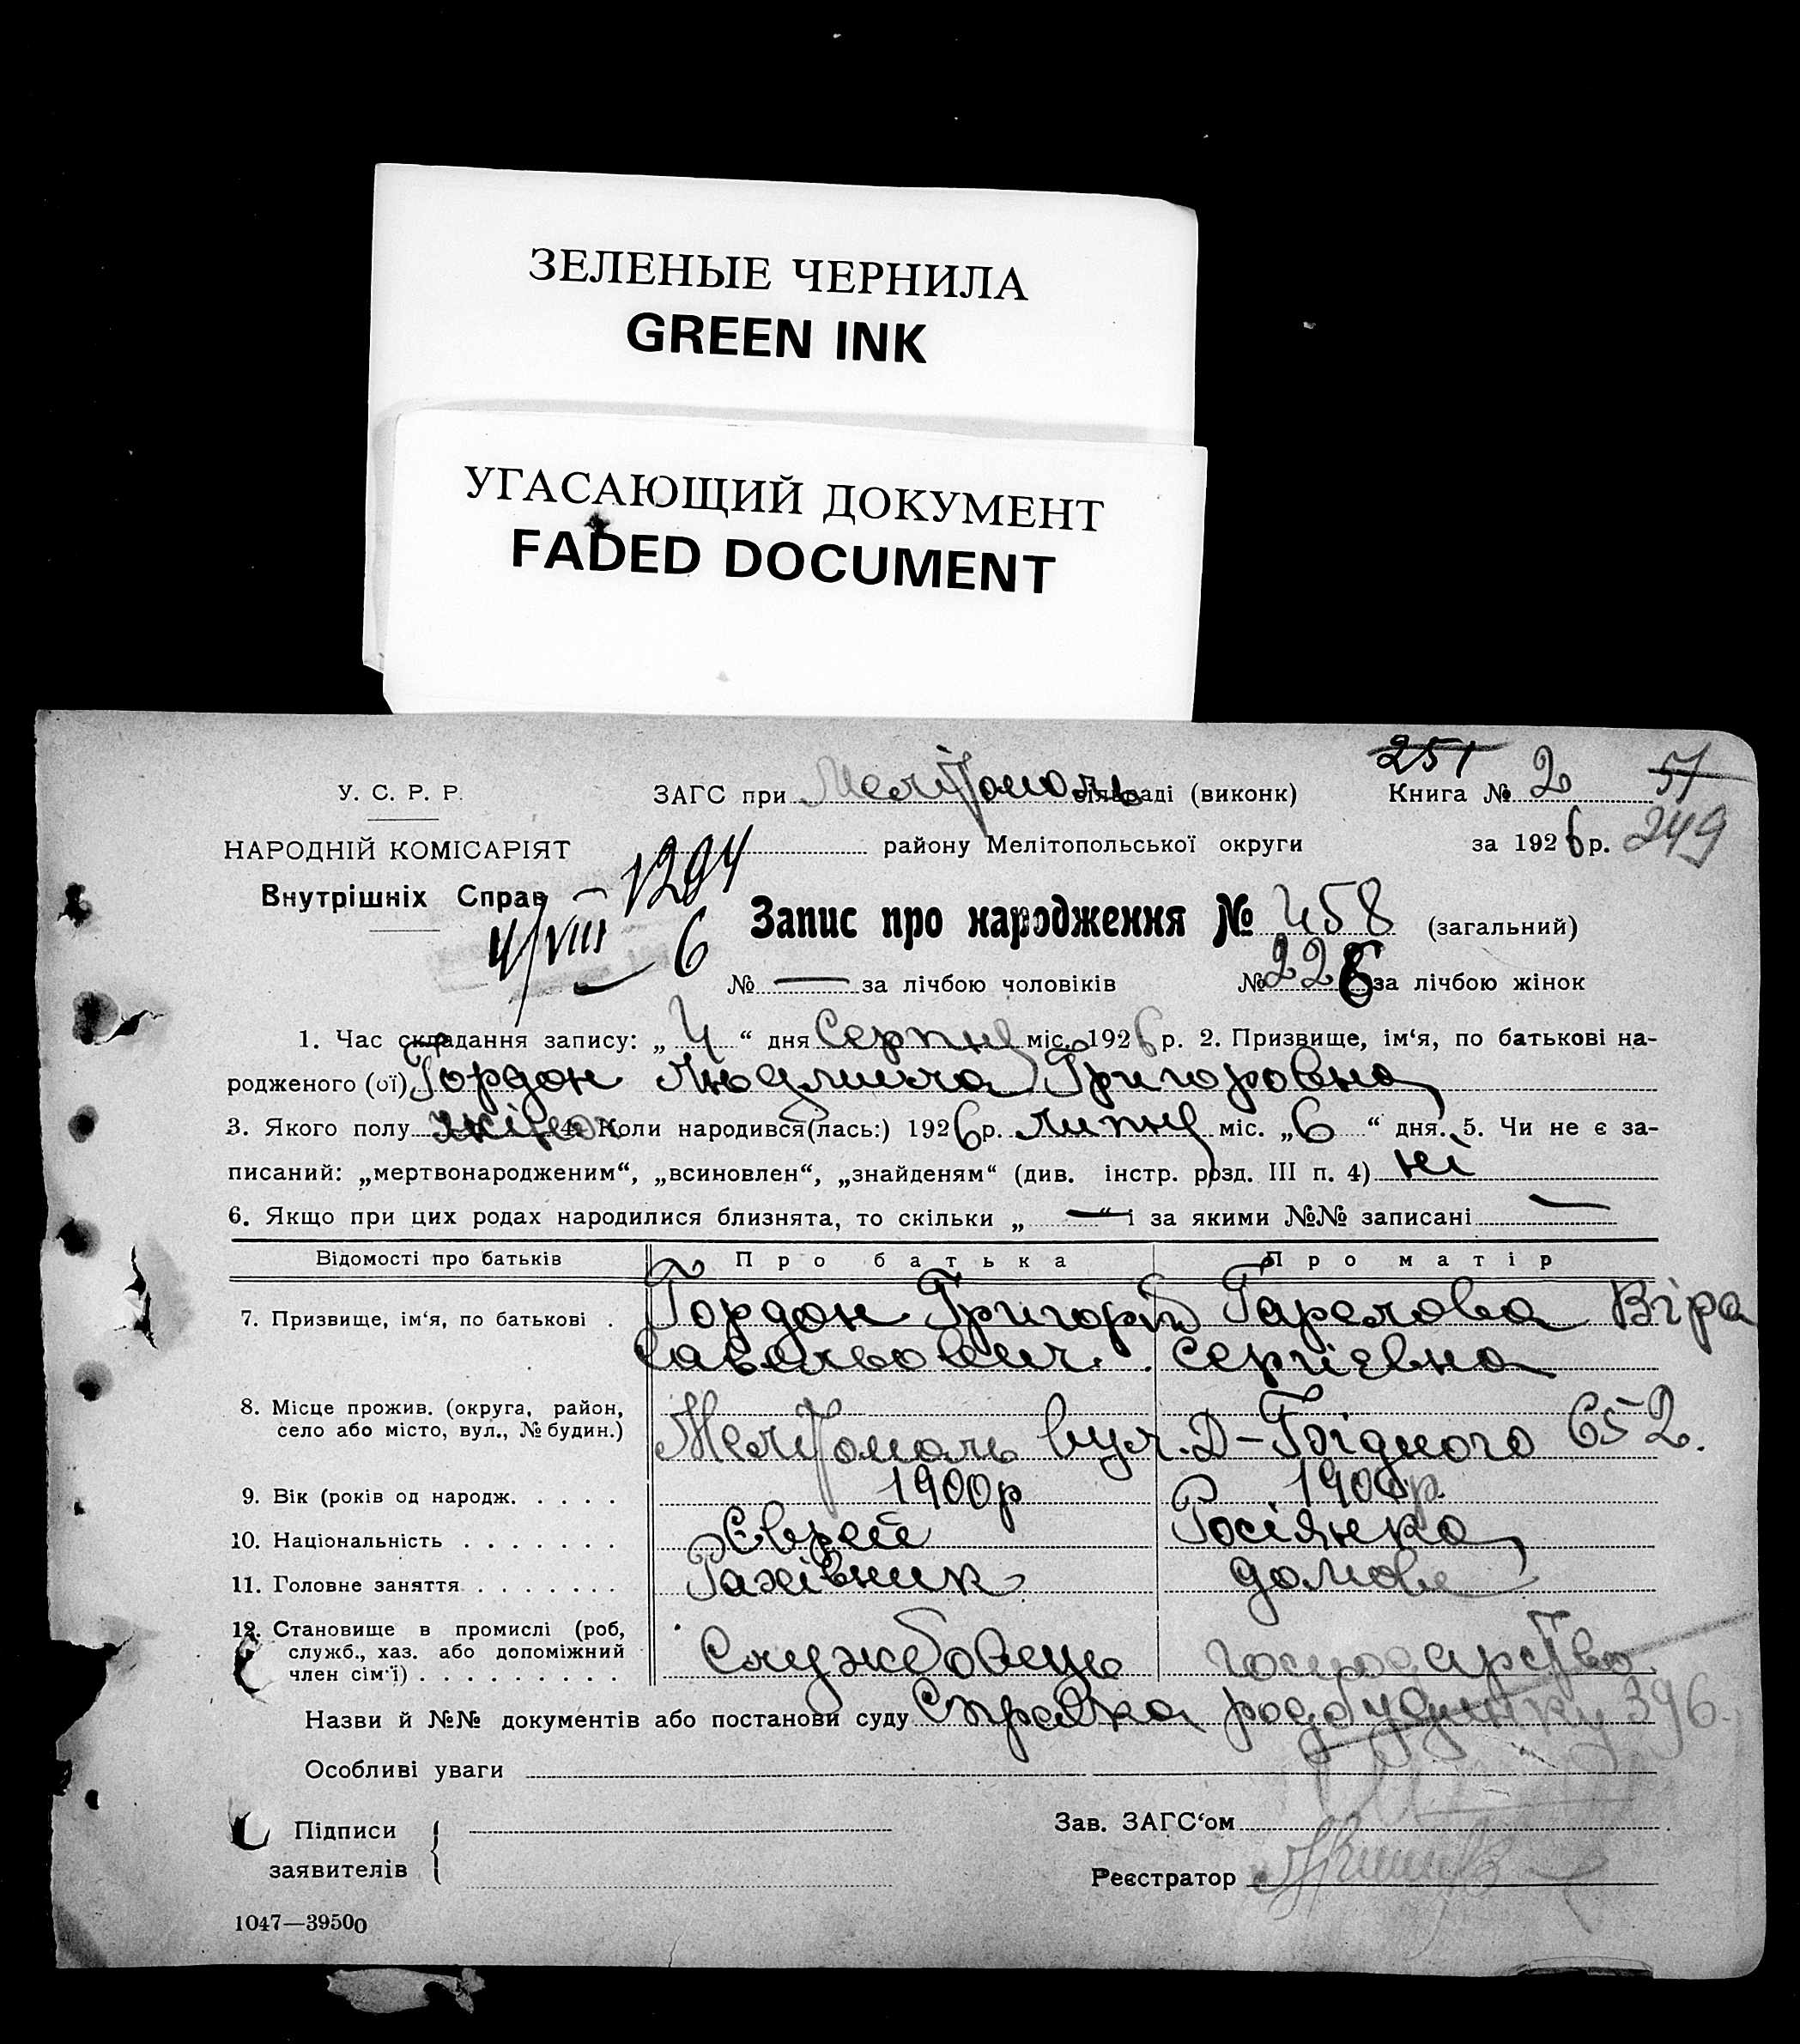 ЗЕЛЕНЫЕ ЧЕРНИЛА
GREEN INK
УГАСАЮЩИЙ ДОКУМЕНТ
FADED DOCUMENT
251 51
У. С. Р. Р. ЗАГС при Мелітополь сільраді (виконк) Книга № 2
НАРОДНІЙ КОМІСАРІЯТ району Мелітопольської округи за 1926 р. 249
Внутрішніх Справ – 1294
4/VIII 6 Запис про народження № 458 (загальний)
№ — за лічбою чоловіків № 226 за лічбою жінок
1. Час складання запису: „ 4 “ дня Серпня міс. 1926 р. 2. Призвище, ім‘я, по батькові на-
родженого (ої) Гордон Людмила Григоровна
3. Якого полу жіноч 4. Коли народився(лась:) 1926 р. липня міс. „ 6 “ дня. 5. Чи не є за-
писаний: „мертвонародженим“, „всиновлен“, „знайденям“ (див. інстр. розд. III п. 4) ні
6. Якщо при цих родах народилися близнята, то скільки „ — “ і за якими №№ записані —
Відомості про батьків Про батька Про матір
7. Призвище, ім‘я, по батькові . Гордон Григорій Гарелова Віра
Савельович. Сергієвна
8. Місце прожив. (округа, район,
село або місто, вул., № будин.) Мелітополь вул. Д-Бідного 652.
9. Вік (років од народж. . . . . 1900р 1900р.
10. Національність . . . . . . . Єврей Росіянка
11. Головне заняття . . . . . . . Рахівник домове
12. Становище в промислі (роб,
служб., хаз. або допоміжний
член сім‘ї) . . . . . . . . . Службовець господарство
Назви й №№ документів або постанови суду Справка родбудинку 396.
Особливі уваги
Підписи
заявителів
Зав. ЗАГС‘ом
Реєстратор
1047—39500